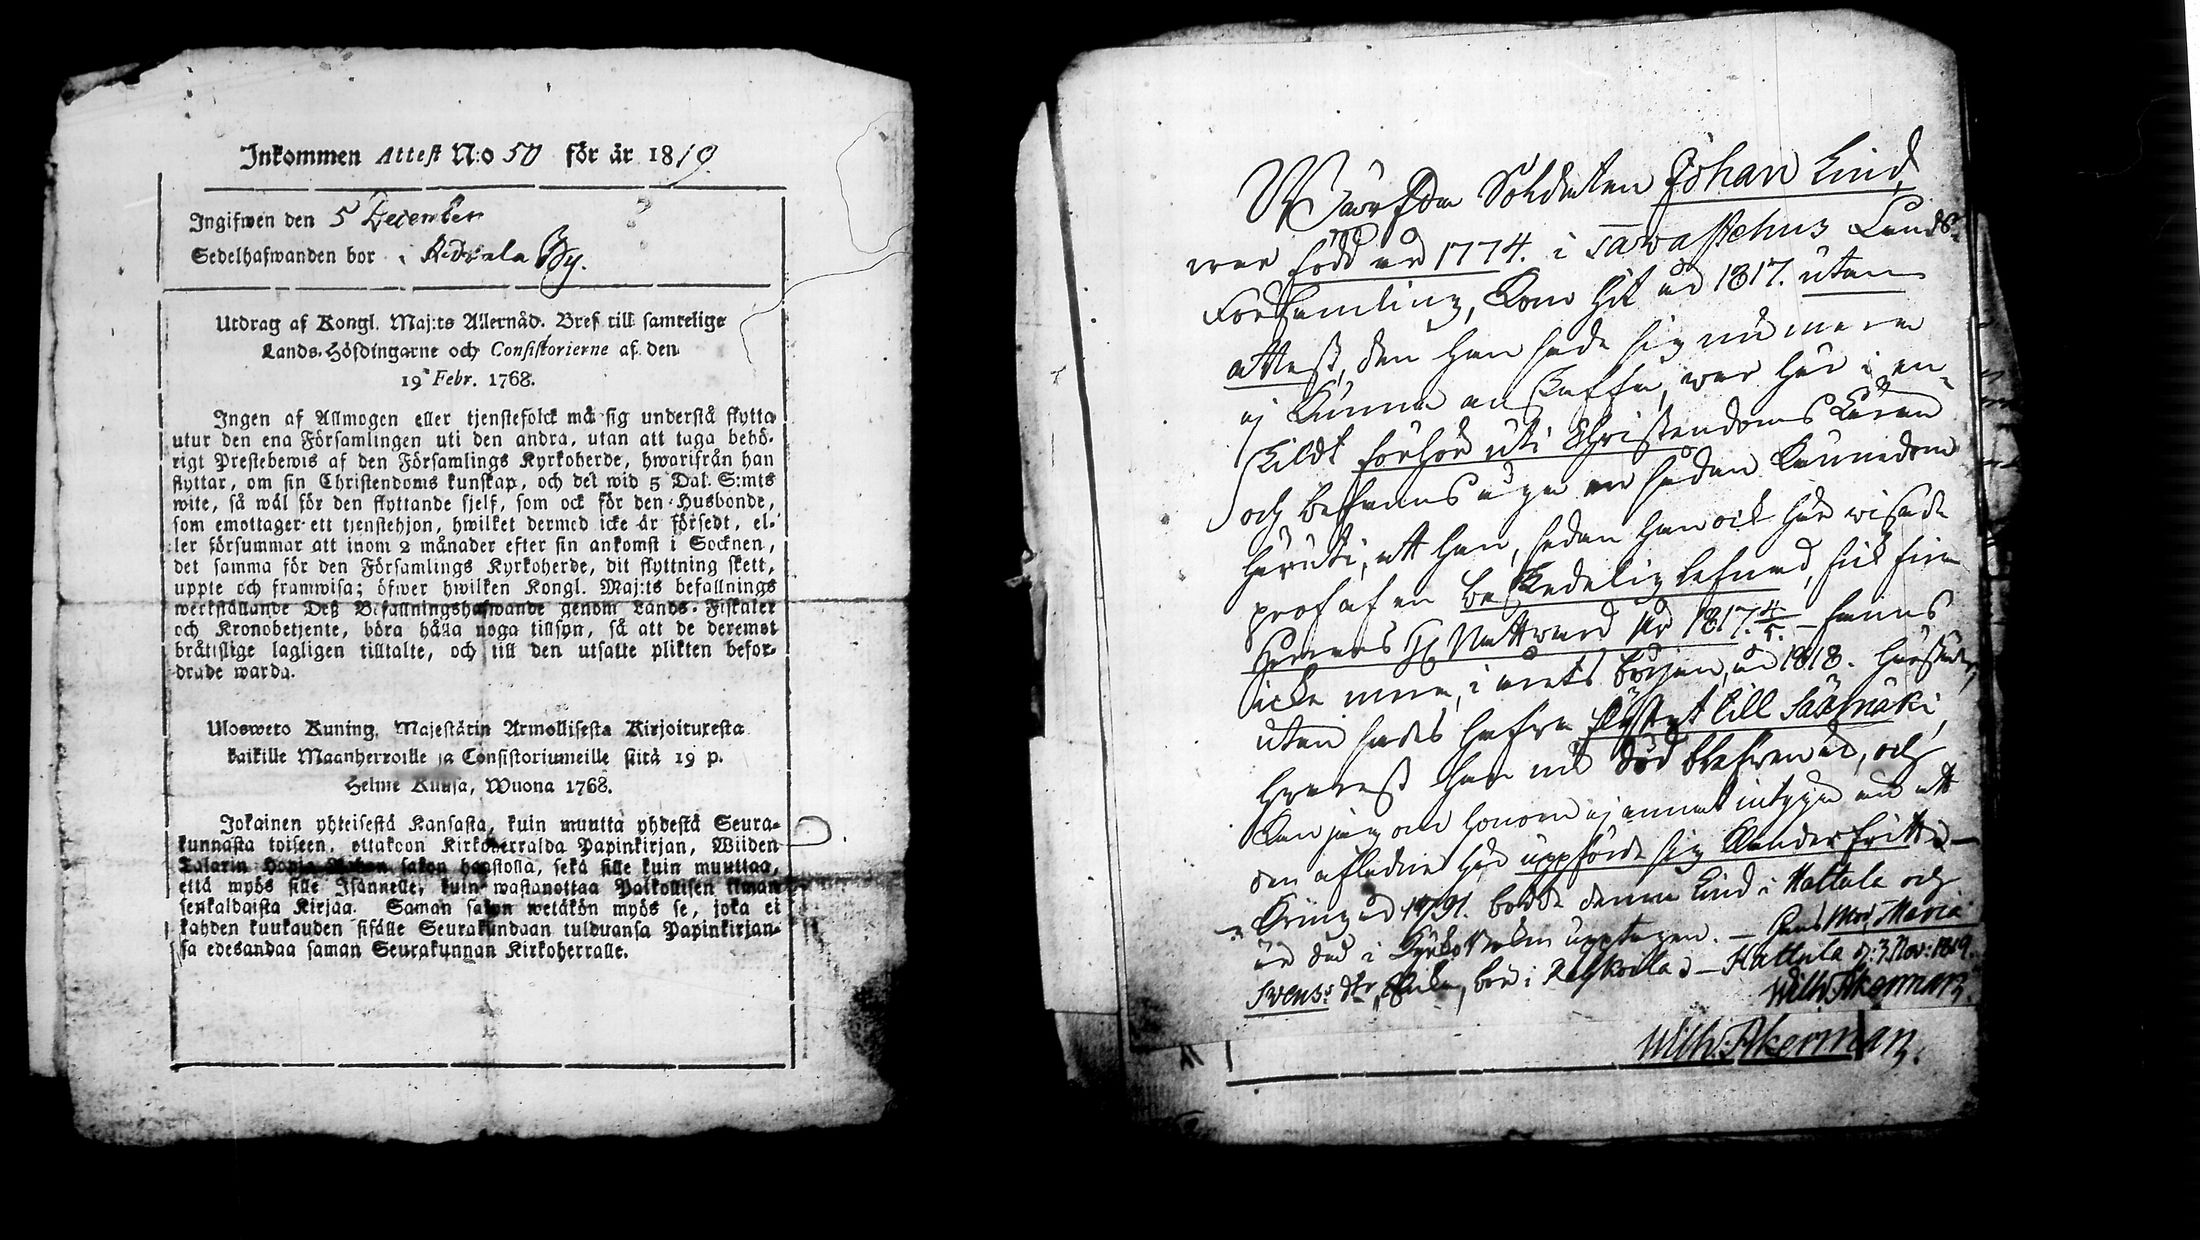 Inkommen Attest N:o 50 för år 1819.
Ingifwen den 5 December
Sedelhafwanden bor i By.
Utdrag af Kongl. Maj:ts Allernåd. Bref till samtelige
Lands-Höfdingarne och Consistorierne af den
19 Febr. 1768.
Ingen af Allmogen eller tjenstefolck må sig understå flytta
utur den ena Församlingen uti den andra, utan att taga behö-
rigt Prestebewis af den Församlings Kyrkoherde, hwarifrån han
flyttar, om sin Christendoms kunskap, och det wid 5 Dal. S:mts
wite, så wäl för den flyttande sjelf, som ock för den Husbonde,
som emottager ett tjenstehjon, hwilket dermed icke är försedt, el-
ler försummar att inom 2 månader efter sin ankomst i Socknen,
det samma för den Församlings Kyrkoherde, dit flyttning skett,
uppte och framwisa; öfwer hwilken Kongl. Maj:ts befallnings
werkställande Deß Befallningshafwande genom Lands-Fiskaler
och Kronobetjente, böra hålla noga tillsyn, så att de deremot
bråttslige lagligen tilltalte, och till den utsatte plikten befor-
drade warda.
Ulosweto Kuning. Majestätin Armollisesta Kirjoituresta
kaikille Maanherroille ja Consistoriumeille siitä 19 p.
Helme Kuusa, Wuona 1768.
Jokainen yhteisestä Kansasta, kuin muutta yhdestä Seura-
kunnasta toiseen, ottakoon Kirkoherralda Papinkirjan, Wiiden
Talarin Hopia Rahan sakon haastolla, sekä sille kuin muuttaa,
että myös sille Isännelle, kuin wastanottaa Palkollisen ilman
senkaldaista Kirjaa. Saman sakon wetäkön myös se, joka ei
kahden kuukauden sisälle Seurakundaan tulduansa Papinkirjan-
sa edesandaa saman Seurakunnan Kirkoherralle.
Soldaten Johan Lind,
war född år 1774. i Tavastehus Lands-
Församling, kom hit år 1817. utan
attest, den han sade sig nu mera
ej kunna anskaffa, war här i en-
skildt förhör uti Christendoms Läran
och befanns äga en sådan kunnedom
häruti, att han, sedan han ock här wisade
prof af en beskedelig lefnad, fick sin
Herrens H. Nattward År 1817. 4/5. - fanns
icke mera, i årets början, år 1818. härstädes,
utan sades hafva flyttat till Sääsmäki,
hwarest han nu död blefwen är, och
kan jag om honom ej annat intyga än att
den aflidne här uppförde sig klanderfritt. -
Kring år 1791. bodde denne Lind i Hattula och
är der i Kyrko Boken upptagen. - Hans Mor, Maria
Svens dtr, Enka, bor i - Hattula d: 3 Nov: 1819.
Wilh: Åkerman.
Wilh: Åkerman.